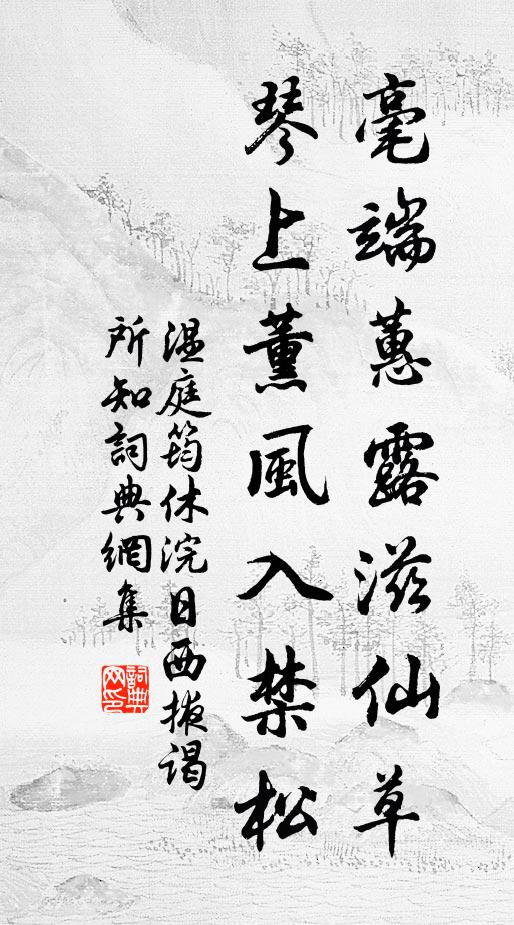 毫端蕙露滋仙草
琴上薰風入禁松
温庭筠休浣日西掖谒
所知詞典網集
詞典
网印